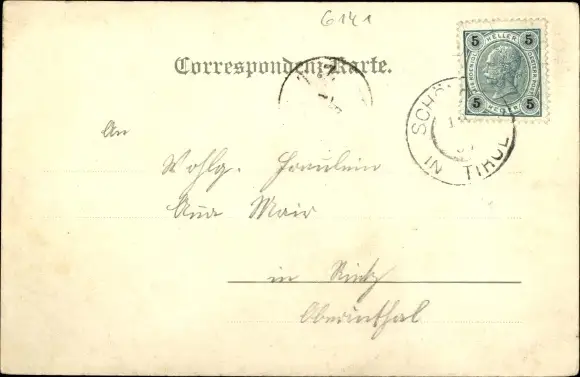 6141
Correspondenz-Karte.
5 HELLER 5
5 HELLER 5
SCH
IN TIROL
An
Wohlg. Fräulein
Ana Mair
in Rietz
Oberinthal